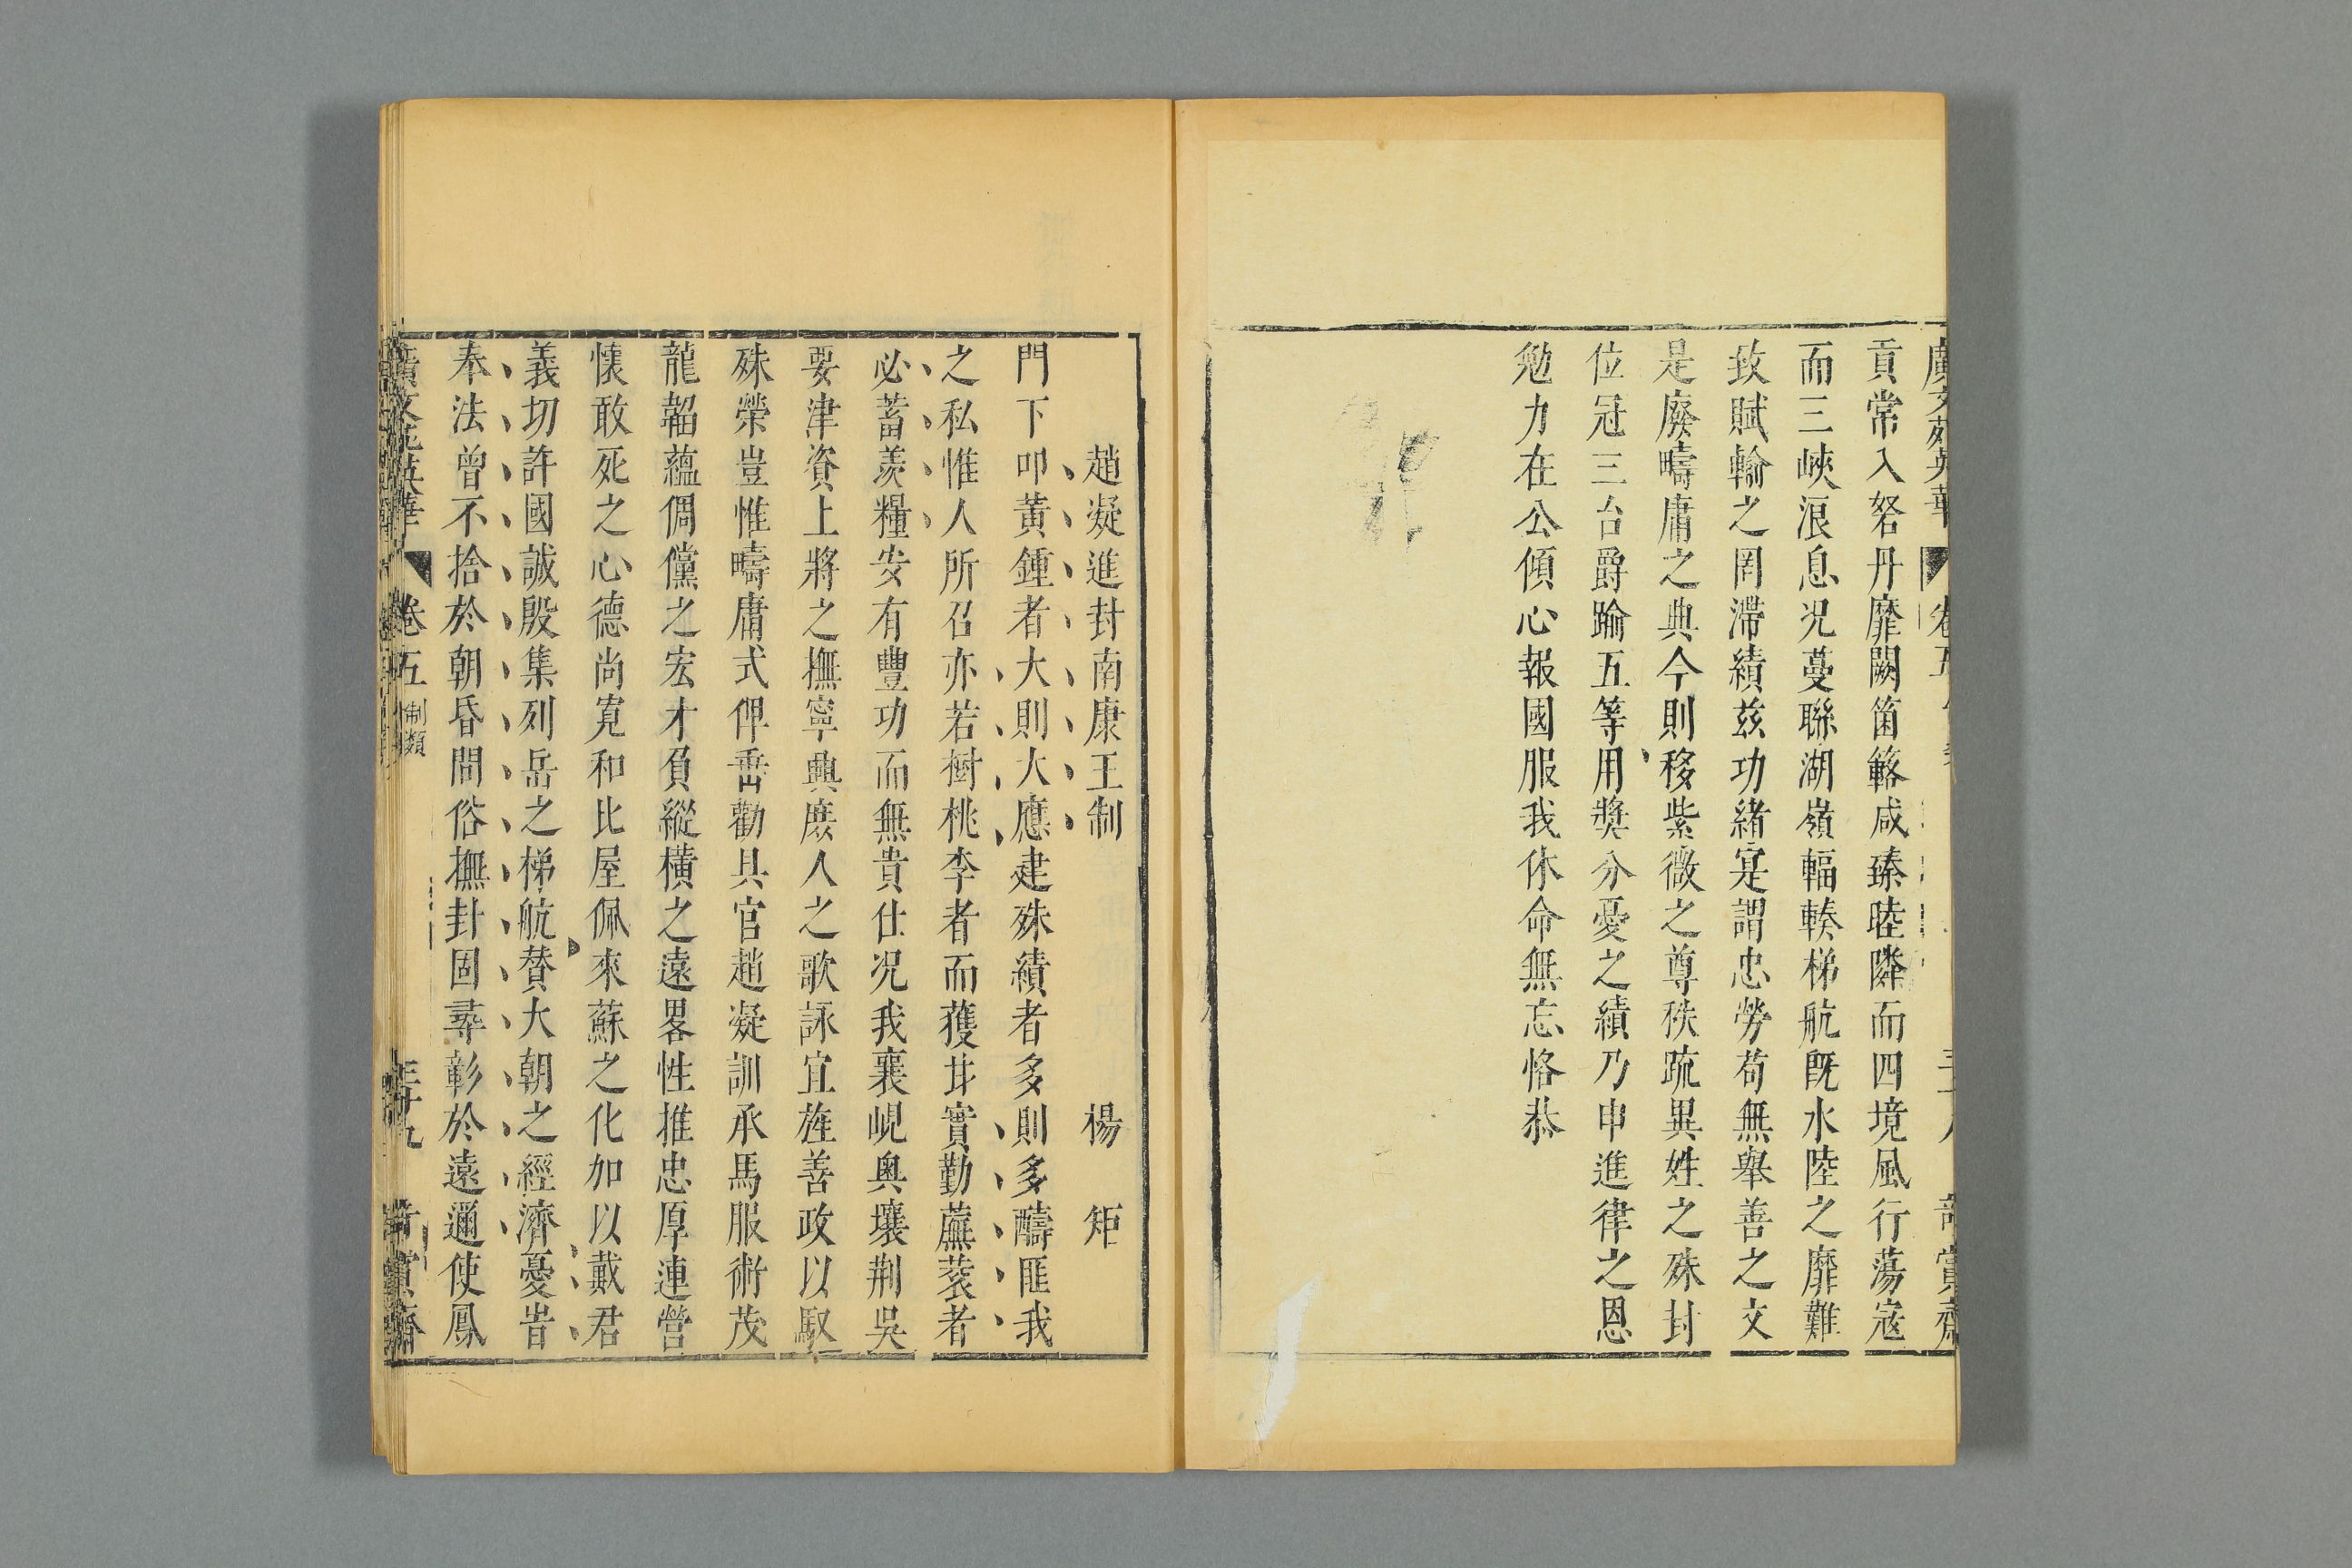 廣文苑英華 卷五 三十八 奇賞齋
貢常入砮丹靡闕箘簵咸臻睦隣而四境風行蕩寇
而三峽浪息况蔓聯湖嶺輻輳梯航旣水陸之靡難
致賦輸之罔滯績兹功緒寔謂忠勞苟無舉善之文
是廢疇庸之典今則移紫微之尊秩疏異姓之殊封
位冠三台爵踰五等用奬分憂之績乃申進律之恩
勉力在公傾心報國服我休命無忘恪恭
趙凝進封南康王制 楊矩
門下叩黃鍾者大則大應建殊績者多則多醻匪我
之私惟人所召亦若樹桃李者而獲甘實勤藨蔉者
必蓄羨糧安有豐功而無貴仕况我襄峴奥壤荆吳
要津資上將之撫寧興庶人之歌詠宜旌善政以馭
殊榮豈惟疇庸式俾垂勸具官趙凝訓承馬服術茂
龍韜蘊倜儻之宏才負縱橫之遠畧性推忠厚連營
懷敢死之心德尚寛和比屋佩來蘇之化加以戴君
義切許國誠殷集列岳之梯航賛大朝之經濟憂旹
奉法曾不捨於朝昏問俗撫封固辜彰於遠邇使鳳
廣文苑英華 卷五 制類 三十九 奇賞齋